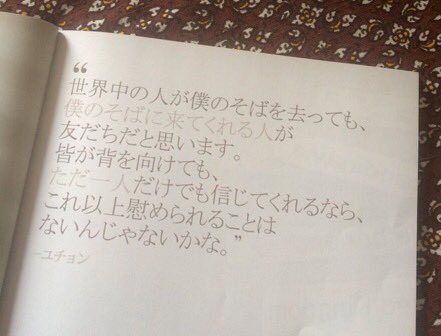 “
世界中の人が僕のそばを去っても、
僕のそばに来てくれる人が
友だちだと思います。
皆が背を向けても、
ただ一人だけでも信じてくれるなら、
これ以上慰められることは
ないんじゃないかな。”
-ユチョン